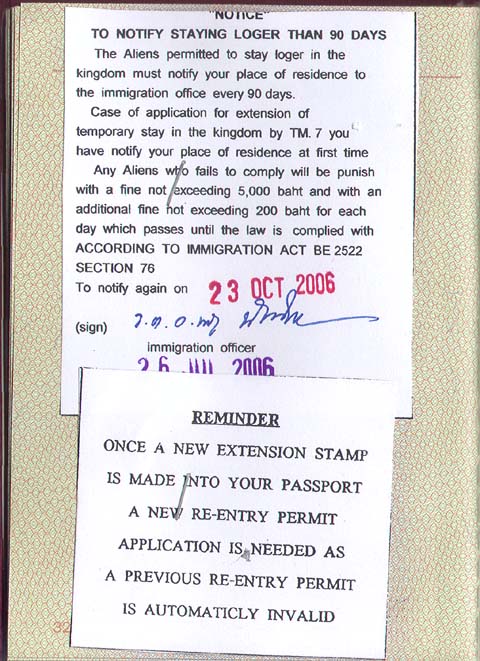 "NOTICE"
TO NOTIFY STAYING LOGER THAN 90 DAYS
The Aliens permitted to stay loger in the
kingdom must notify your place of residence to
the immigration office every 90 days.
Case of application for extension of
temporary stay in the kingdom by TM. 7 you
have notify your place of residence at first time
Any Aliens who fails to comply will be punish
with a fine not exceeding 5,000 baht and with an
additional fine not exceeding 200 baht for each
day which passes until the law is complied with
ACCORDING TO IMMIGRATION ACT BE 2522
SECTION 76
To notify again on 23 OCT 2006
(sign)
immigration officer
26 JUL 2006
REMINDER
ONCE A NEW EXTENSION STAMP
IS MADE INTO YOUR PASSPORT
A NEW RE-ENTRY PERMIT
APPLICATION IS NEEDED AS
A PREVIOUS RE-ENTRY PERMIT
IS AUTOMATICLY INVALID
32